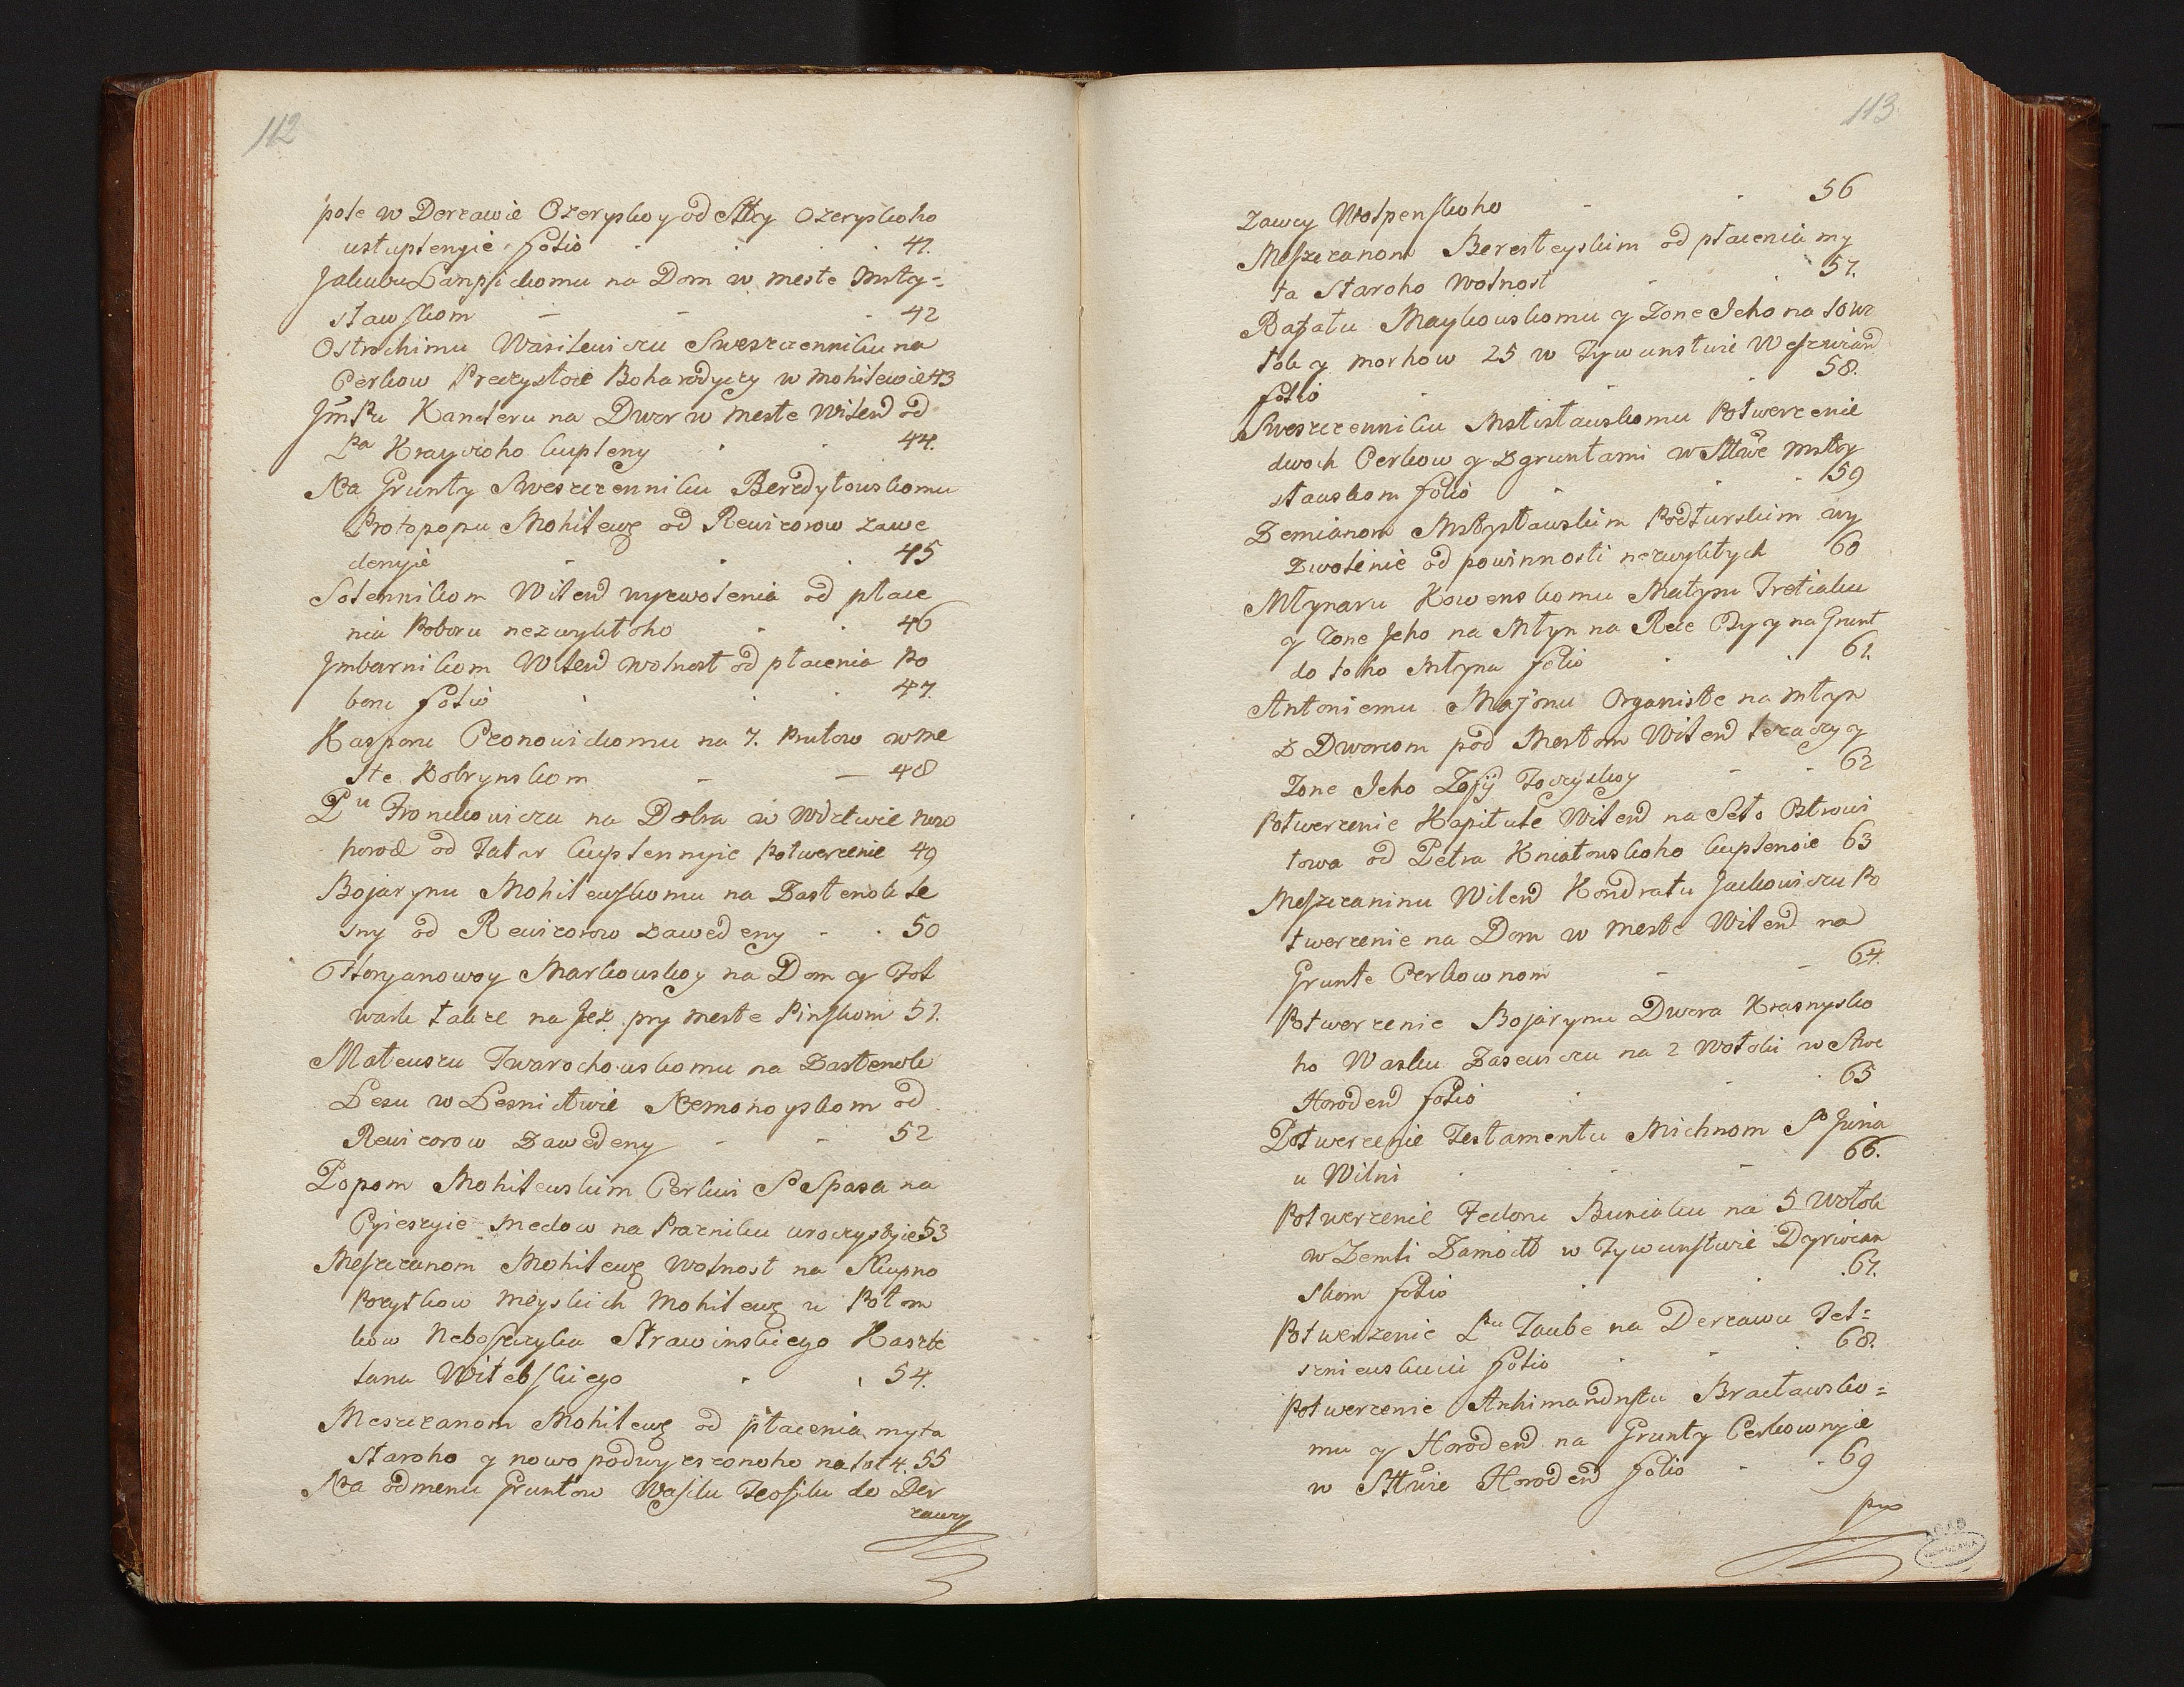 112
pole w Derzawie Ozeryskoy od Stty Ozeryskoho
ustuplenyie folio 41.
Jakubu Lanpickomu na Dom w meste Msty=
stawskom 42
Ostrochimu Wasilewiczu Sweszczenniku na
Cerkow Preczystoie Boharodycy w Mohilewie 43
Jmsu Kancleru na Dwor w meste Wilend od
Pa Krayczoho kupleny 44.
Na Grunty Sweszczenniku Berezdytowskomu
Protopopu Mohilewg od Rewizorow zawe
denyie 45
Sotennikom Wilend wyzwolenia od place
nia Poboru nezwykłoho 46
Jmbarnikom Wilend wolnost od placenia Po
boru folio 47.
Kasparu Czonowickomu na 7. Prutow w me
ste Kobrynskom 48
Pu Fronckowiczu na Dobra w Wdztwie Nowo
horod od Tatar kuplennyie Potwerzenie 49
Bojarynu Mohilewskomu na Zastenok le
sny od Rewizorow zawedeny 50
Floryanowoy Markowskoy na Dom y Fol
wark takze na Jez pry meste Pinskom 51.
Mateuszu Twarochowskomu na Zastenok
Lesu w Lesnictwie Nemonoyskom od
Rewizorow Zawedeny 52
Popom Mohilewskim Cerkwi So Spasa na
Syieszyie medow na Prazniku uroczystyie 53
Meszczanom Mohilewg Wolnost na Skupno
Pozytkow meyskich Mohilewg u Potom
kow Neboszczyka Strawinskiego Kaszte
lana Witebskiego 54.
Meszczanom Mohilewg od placenia myta
Staroho y nowo podwyzszonoho na lat 4. 55
Na odmenu Gruntow Wasilu Teofilu do Der
zawcy
113
zawcy Wolpenskoho 56
Meszczanom Beresteyskim od placenia my
ta Staroho Wolnost 57.
Rafalu Maykowskomu y Zone Jeho na 10 wo
lok y morhow 25 w Tywunstwie Weszwiand
folio 58.
Sweszczenniku Mstislawskomu Potwerzenie
dwoch Cerkow y z gruntami w Sttwe Msty
slawskom folio 59
Zemianom Mstyslawskim Podturskim wy
zwolenie od powinnosti nezwykłych 60
Młynaru Kowenskomu Matysu Tretiaku
y Zone Jeho na Młyn na Rece y na Grunt
do toho Młyna folio 61.
Antoniemu Majonu Organiste na młyn
z Dworcom pod Mestom Wilend lezaczy y
Zone Jeho Zofij Toczyskoy 62
Potwerzenie Kapitule Wilend na Seło Ostrowi
towa od Petra Kmatowskoho kuplenoie 63
Meszczaninu Wilend Kondratu Jackowiczu Po
twerzenie na Dom w meste Wilend na
Grunte Cerkownom 64.
Potwerzenie Bojarynu Dwora Krasnysko
ho Wasku Zasewiczu na 2 Wołoki w Stwe
Horodend folio 65
Potwerzenie Testamentu Michnom So Jwina
u Wilni 66.
Potwerzenie Fedoru Buniaku na 5 Wołok
w Zemli Zamoitt w Tywunstwie Dyrwian
skom folio 67.
Potwerzenie Pu Taube na Derzawu Tel=
szniewskuiu folio 68.
Potwerzenie Archimandrytu Bracławsko=
mu y Horodend na Grunty Cerkownyie
w Sttwie Horodend folio 69